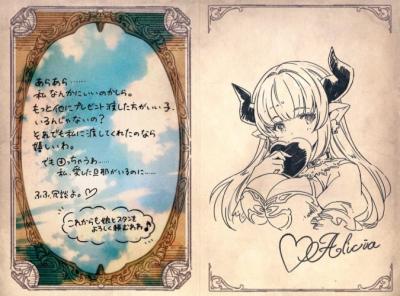 あらあら……
私なんかにいいのかしら。
もっと他にプレゼント渡した方がいい子、
いるんじゃないの?
それでも私に渡してくれたのなら
嬉しいわ。
でも困っちゃうわ……
私、愛した旦那がいるのに……
ふふ、冗談よ。♡
これからも娘とスタンを
よろしく頼むわね♪
♡Alicia